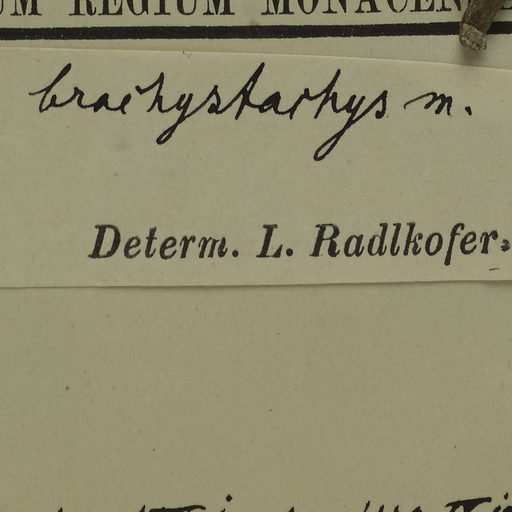 UM REGIUM MONACEN
brachystachys m.
Determ. L. Radlkofer.